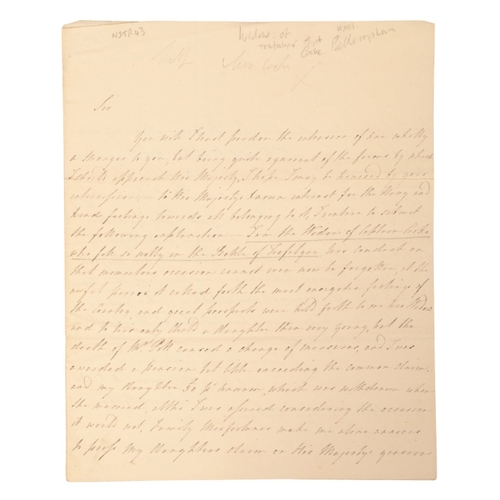 NSTR43
Widow of
Captain Cooke
Bellerophon
Sir
You will I trust pardon the intrusion of one wholly
a stranger to you, but being quite ignorant of the forms by which
I should approach His Majesty, I hope I may be
intercession — to His Majesty's known interest for the Navy and
kind feelings towards all belonging to it, I venture to submit
the following explanation — I am the Widow of Captain Cooke
who fell so nobly in the Battle of Trafalgar, his conduct on
that momentous occasion cannot even now be forgotten, at the
awful period it called forth the most energetic feelings of
the Country, and great prospects were held forth to me his Widow
and to his only child a daughter then very young, but the
death of Mr. Pitt caused a change of measures, and I was
awarded a Pension but little exceeding the common claim,
and my daughter pr annum, which was withdrawn when
she married, altho' I was assured considering the occasion
it would not. Family Misfortunes make me alone anxious
to press my daughters claim on His Majesty's generous